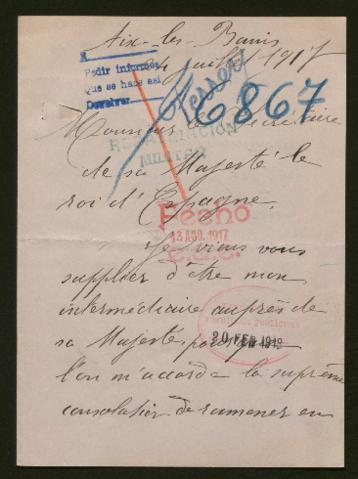 Aix-les-Bains
24 Juillet 1917
A
Pedir informes
que se hace así
Devolver
16867
Monsieur le Secrétaire
REPATRIACIÓN
MILITAR
de sa Majesté le
roi d'Espagne,
Fecho
13 AGO. 1917
Je viens vous
supplier d'être mon
intermédiaire auprès de
sa Majesté pour que
20 FEB 1919
l'on m'accorde la suprême
consolation de ramener en